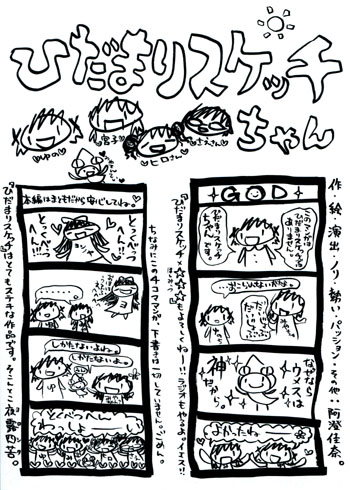 ひだまりスケッチ
ちゃん
ゆの
宮子
ヒロさん
さえさん
作・絵・演出・ノリ・勢い・パッション・その他…阿澄佳奈。
GOD
このマンガは
ひだまりスケッチ
ちゃんです。
…おこられないかなぁ。
だいじょーぶ
なぜなら
ウメスは
神
だから。
よかったね
『ひだまりスケッチ×☆☆☆』もみてくねー!!ラジオもやるよ。イエス!!
ちなみにこの4コママンガ、下書き一切してません。ごめん。
本編はまともだから安心してね。
とくべつ
へーん!!
とくべつ
へん!!
しかたないよね。
しかたないよ。
とくべつへん
わっしょーい
『ひだまりスケッチ』はとてもステキな作品です。そこんとこ夜露四苦。